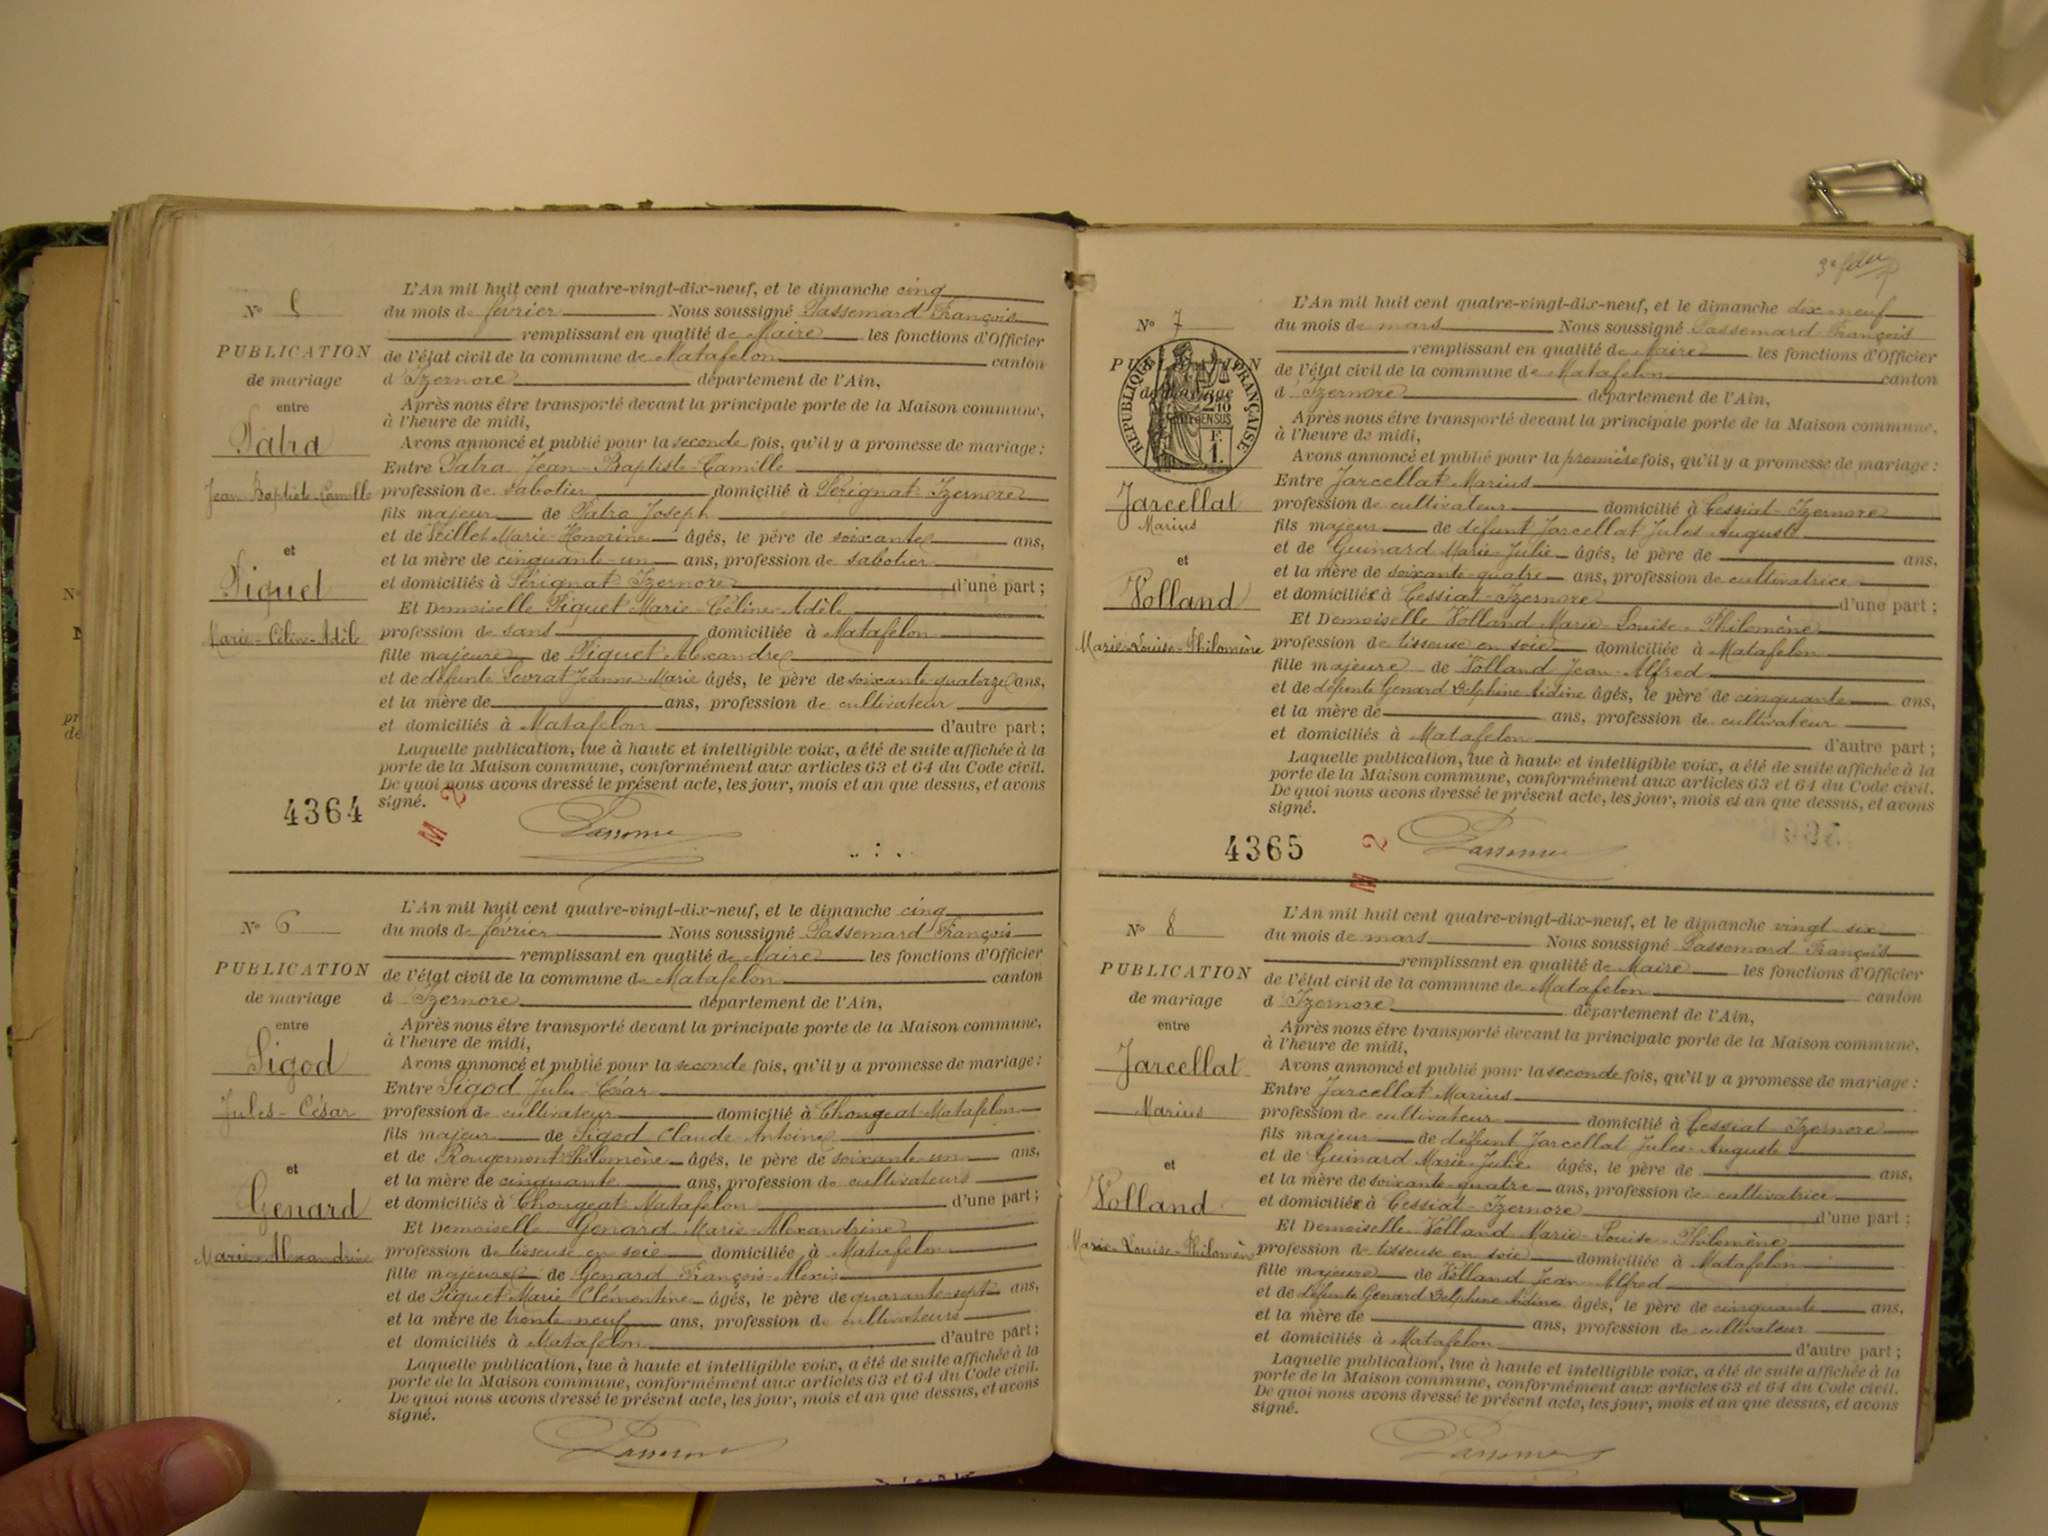 N° 5
PUBLICATION
de mariage
entre
Patra
Jean Baptiste Camille
et
Piquet
Marie-Céline-Adèle
L'An mil huit cent quatre-vingt-dix-neuf, et le dimanche cinq
du mois de février Nous soussigné Passemard François
remplissant en qualité de Maire les fonctions d'Officier
de l'état civil de la commune de Matafelon canton
d'Izernore département de l'Ain,
Après nous être transporté devant la principale porte de la Maison commune,
à l'heure de midi,
Avons annoncé et publié pour la seconde fois, qu'il y a promesse de mariage :
Entre Patra Jean-Baptiste-Camille
profession de sabotier domicilié à Pérignat-Izernore
fils majeur de Patra Joseph
et de Veillet Marie-Honorine âgés, le père de soixante ans,
et la mère de cinquante-un ans, profession de sabotier
et domiciliés à Pérignat-Izernore d'une part ;
Et Demoiselle Piquet Marie-Céline-Adèle
profession de sans domiciliée à Matafelon
fille majeure de Piquet Alexandre
et de défunte Sevrat Jeanne-Marie âgés, le père de soixante-quatorze ans,
et la mère de ans, profession de cultivateur
et domiciliés à Matafelon d'autre part ;
Laquelle publication, lue à haute et intelligible voix, a été de suite affichée à la
porte de la Maison commune, conformément aux articles 63 et 64 du Code civil.
De quoi nous avons dressé le présent acte, les jour, mois et an que dessus, et avons
signé.
4364
M 2
N° 6
PUBLICATION
de mariage
entre
Sigod
Jules-César
et
Genard
Marie-Alexandrine
L'An mil huit cent quatre-vingt-dix-neuf, et le dimanche cinq
du mois de février Nous soussigné Passemard François
remplissant en qualité de Maire les fonctions d'Officier
de l'état civil de la commune de Matafelon canton
d Izernore département de l'Ain,
Après nous être transporté devant la principale porte de la Maison commune,
à l'heure de midi,
Avons annoncé et publié pour la seconde fois, qu'il y a promesse de mariage :
Entre Sigod Jules-César
profession de cultivateur domicilié à Chongeat-Matafelon
fils majeur de Sigod Claude-Antoine
et de Rougemont Philomène âgés, le père de soixante-un ans,
et la mère de cinquante ans, profession de cultivateurs
et domiciliés à Chongeat-Matafelon d'une part ;
Et Demoiselle Genard Marie-Alexandrine
profession de tisseuse en soie domiciliée à Matafelon
fille majeure de Genard François-Alexis
et de Piquet Marie Clémentine âgés, le père de quarante-sept ans,
et la mère de trente neuf ans, profession de cultivateurs
et domiciliés à Matafelon d'autre part ;
Laquelle publication, lue à haute et intelligible voix, a été de suite affichée à la
porte de la Maison commune, conformément aux articles 63 et 64 du Code civil.
De quoi nous avons dressé le présent acte, les jour, mois et an que dessus, et avons
signé.
N° 7
PUBLICATION
de mariage
RÉPUBLIQUE FRANÇAISE
F.
1.
Jarcellat
Marius
et
Volland
Marie-Louise-Philomène
L'An mil huit cent quatre-vingt-dix-neuf, et le dimanche dix neuf
du mois de mars Nous soussigné Passemard François
remplissant en qualité de Maire les fonctions d'Officier
de l'état civil de la commune de Matafelon canton
d'Izernore département de l'Ain,
Après nous être transporté devant la principale porte de la Maison commune,
à l'heure de midi,
Avons annoncé et publié pour la première fois, qu'il y a promesse de mariage :
Entre Jarcellat Marius
profession de cultivateur domicilié à Cessiat-Izernore
fils majeur de défunt Jarcellat Jules-Auguste
et de Guinard Marie-Julie âgés, le père de ans,
et la mère de soixante-quatre ans, profession de cultivatrice
et domiciliée à Cessiat-Izernore d'une part ;
Et Demoiselle Volland Marie-Louise-Philomène
profession de tisseuse en soie domiciliée à Matafelon
fille majeure de Volland Jean-Alfred
et de défunte Genard Delphine Aidine âgés, le père de cinquante ans,
et la mère de ans, profession de cultivateur
et domiciliés à Matafelon d'autre part ;
Laquelle publication, lue à haute et intelligible voix, a été de suite affichée à la
porte de la Maison commune, conformément aux articles 63 et 64 du Code civil.
De quoi nous avons dressé le présent acte, les jour, mois et an que dessus, et avons
signé.
4365
M 2
N° 8
PUBLICATION
de mariage
entre
Jarcellat
Marius
et
Volland
Marie-Louise-Philomène
L'An mil huit cent quatre-vingt-dix-neuf, et le dimanche vingt six
du mois de mars Nous soussigné Passemard François
remplissant en qualité de Maire les fonctions d'Officier
de l'état civil de la commune de Matafelon canton
d Izernore département de l'Ain,
Après nous être transporté devant la principale porte de la Maison commune,
à l'heure de midi,
Avons annoncé et publié pour la seconde fois, qu'il y a promesse de mariage :
Entre Jarcellat Marius
profession de cultivateur domicilié à Cessiat Izernore
fils majeur de défunt Jarcellat Jules-Auguste
et de Guinard Marie-Julie âgés, le père de ans,
et la mère de soixante-quatre ans, profession de cultivatrice
et domiciliée à Cessiat-Izernore d'une part ;
Et Demoiselle Volland Marie-Louise-Philomène
profession de tisseuse en soie domiciliée à Matafelon
fille majeure de Volland Jean-Alfred
et de défunte Genard Delphine Aidine âgés, le père de cinquante ans,
et la mère de ans, profession de cultivateur
et domiciliés à Matafelon d'autre part ;
Laquelle publication, lue à haute et intelligible voix, a été de suite affichée à la
porte de la Maison commune, conformément aux articles 63 et 64 du Code civil.
De quoi nous avons dressé le présent acte, les jour, mois et an que dessus, et avons
signé.